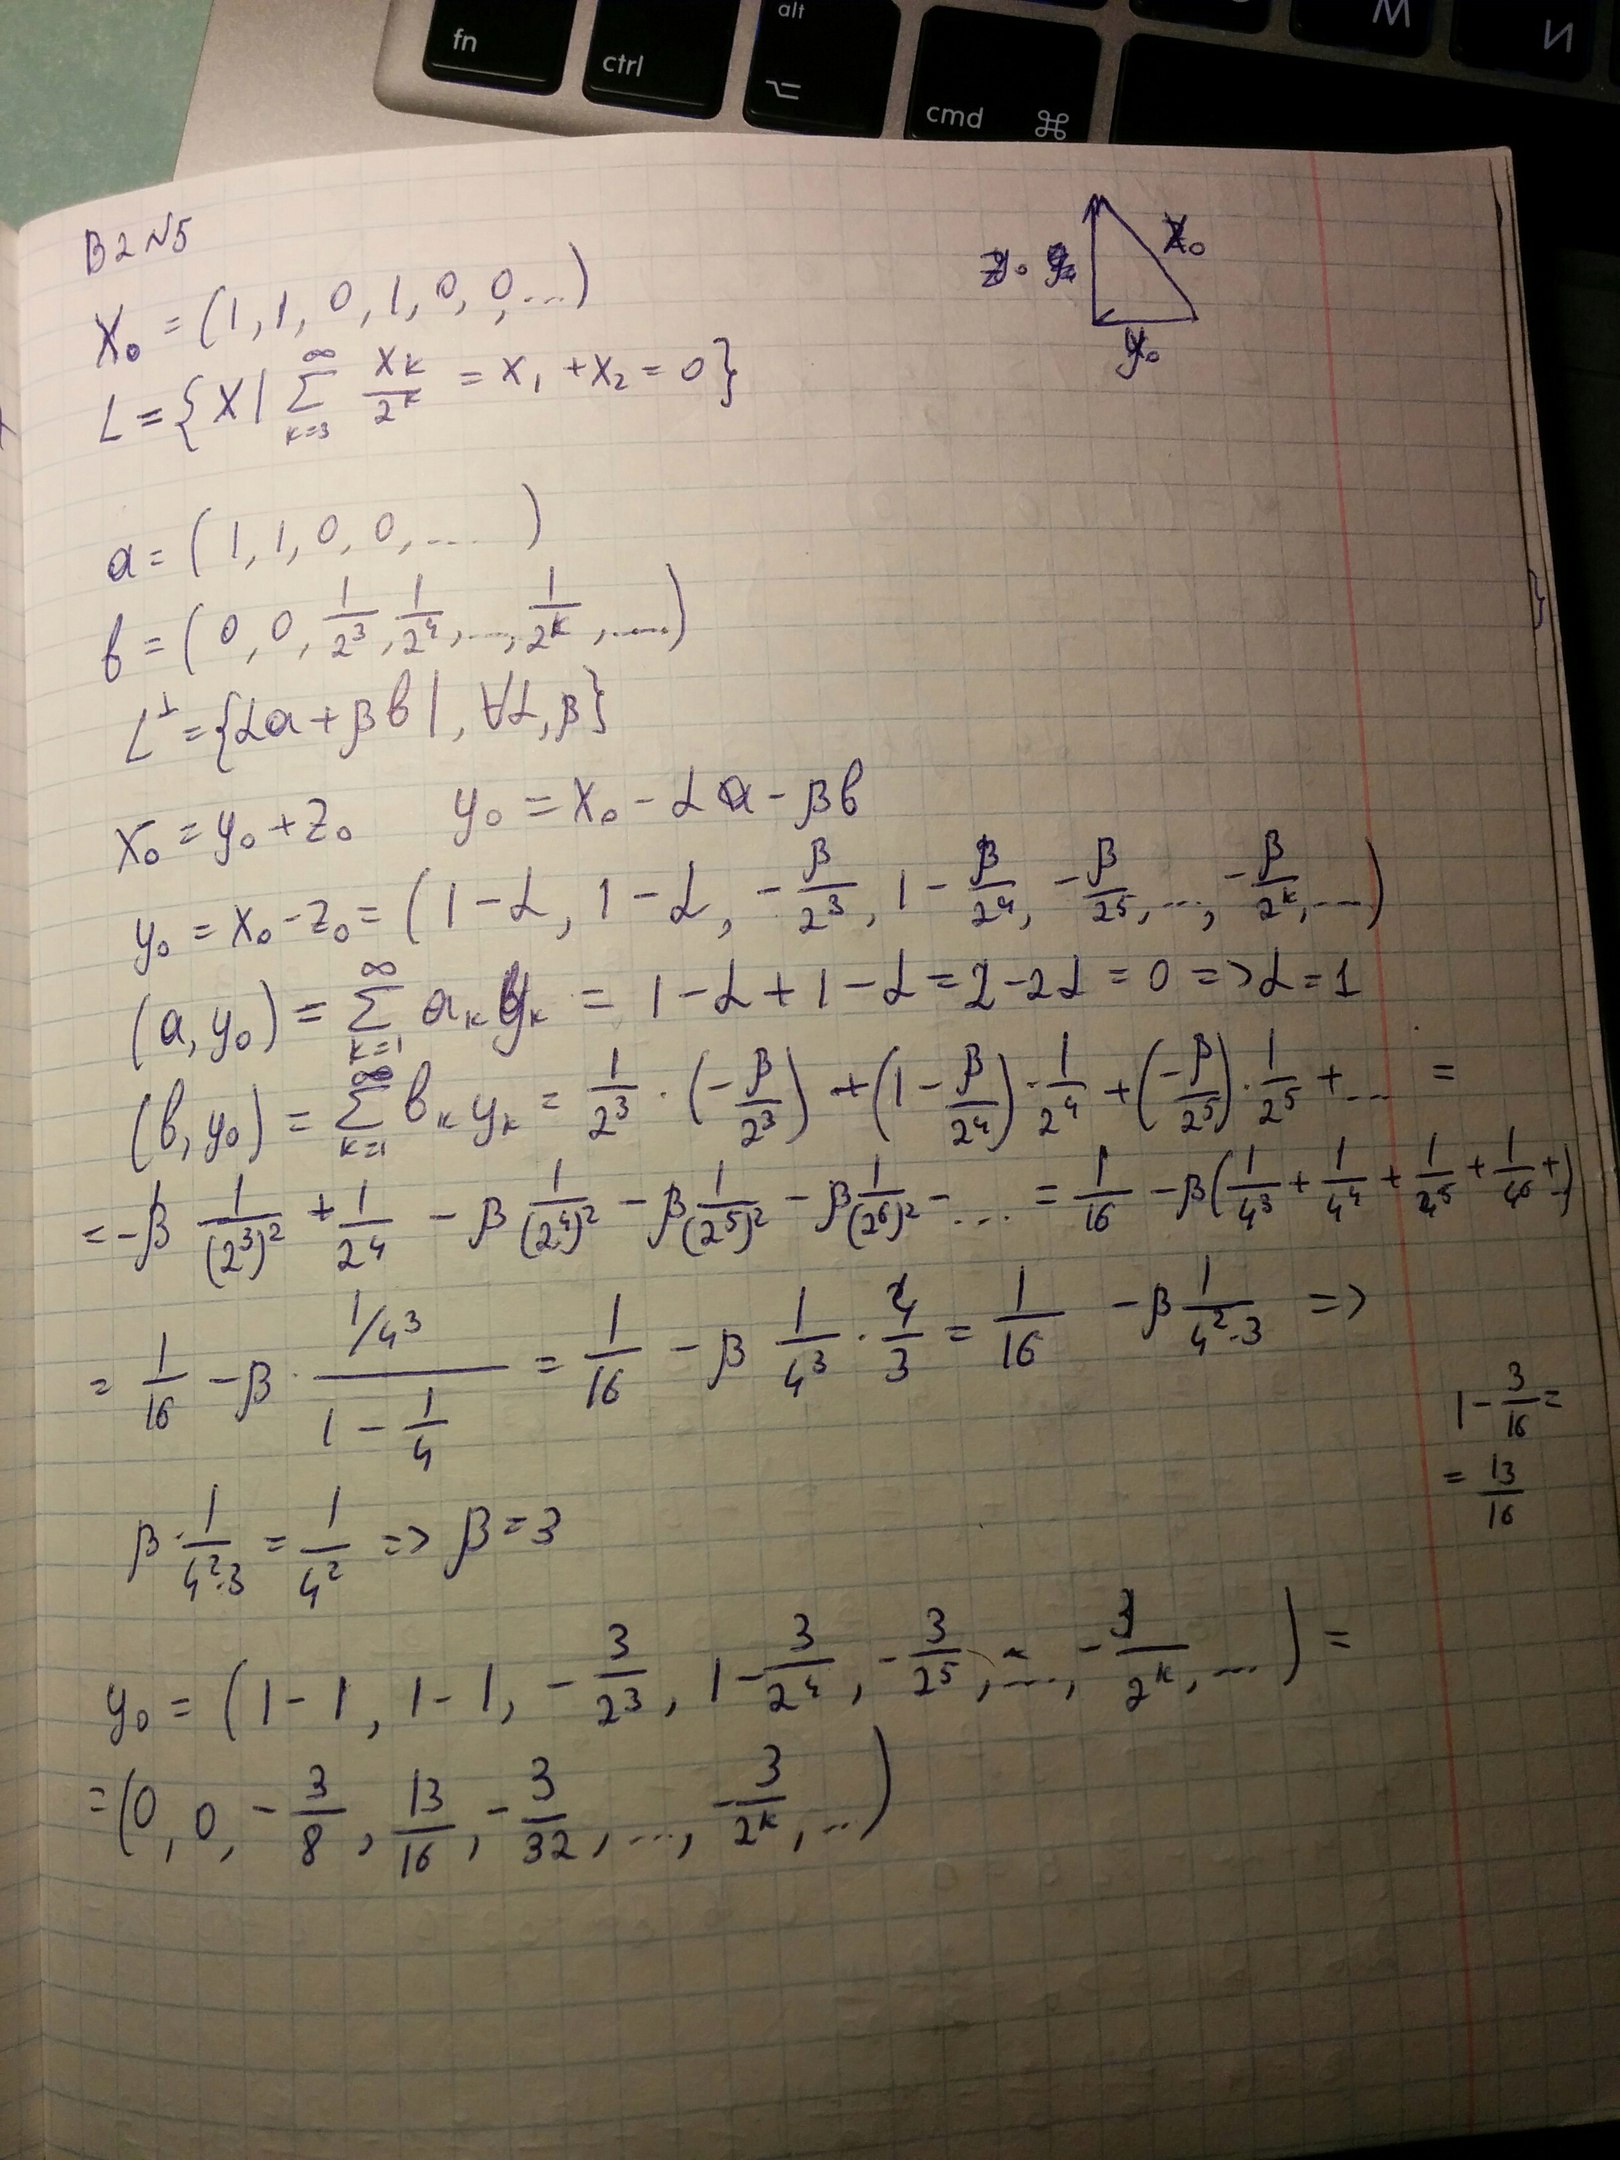 fn ctrl alt ⌥ cmd ⌘ W N
B2N5
X₀ = (1, 1, 0, 1, 0, 0, ...)
L = {X | ∑_{k=3}^{∞} x_k/2^k = x₁ + x₂ = 0}
z₀ x₀
y₀
a = (1, 1, 0, 0, .... )
b = (0, 0, 1/2³, 1/2⁴, ..., 1/2^k, .....)
L^⊥ = {αa + βb |, ∀α, β}
x₀ = y₀ + z₀ y₀ = x₀ - αa - βb
y₀ = x₀ - z₀ = (1-α, 1-α, -β/2³, 1-β/2⁴, -β/2⁵, ..., -β/2^k, ...)
(a, y₀) = ∑_{k=1}^{∞} a_k y_k = 1-α+1-α = 2-2α = 0 => α = 1
(b, y₀) = ∑_{k=1}^{∞} b_k y_k = 1/2³ · (-β/2³) + (1-β/2⁴) · 1/2⁴ + (-β/2⁵) · 1/2⁵ + ... =
= -β 1/(2³)² + 1/2⁴ - β 1/(2⁴)² - β 1/(2⁵)² - β 1/(2⁶)² - ... = 1/16 - β(1/4³ + 1/4⁴ + 1/4⁵ + 1/4⁶ + ...)
= 1/16 - β · (1/4³)/(1 - 1/4) = 1/16 - β 1/4³ · 4/3 = 1/16 - β 1/(4²·3) =>
1 - 3/16 =
= 13/16
β · 1/(4²·3) = 1/4² => β = 3
y₀ = (1-1, 1-1, -3/2³, 1-3/2⁴, -3/2⁵, ..., -3/2^k, ...) =
= (0, 0, -3/8, 13/16, -3/32, ..., -3/2^k, ...)